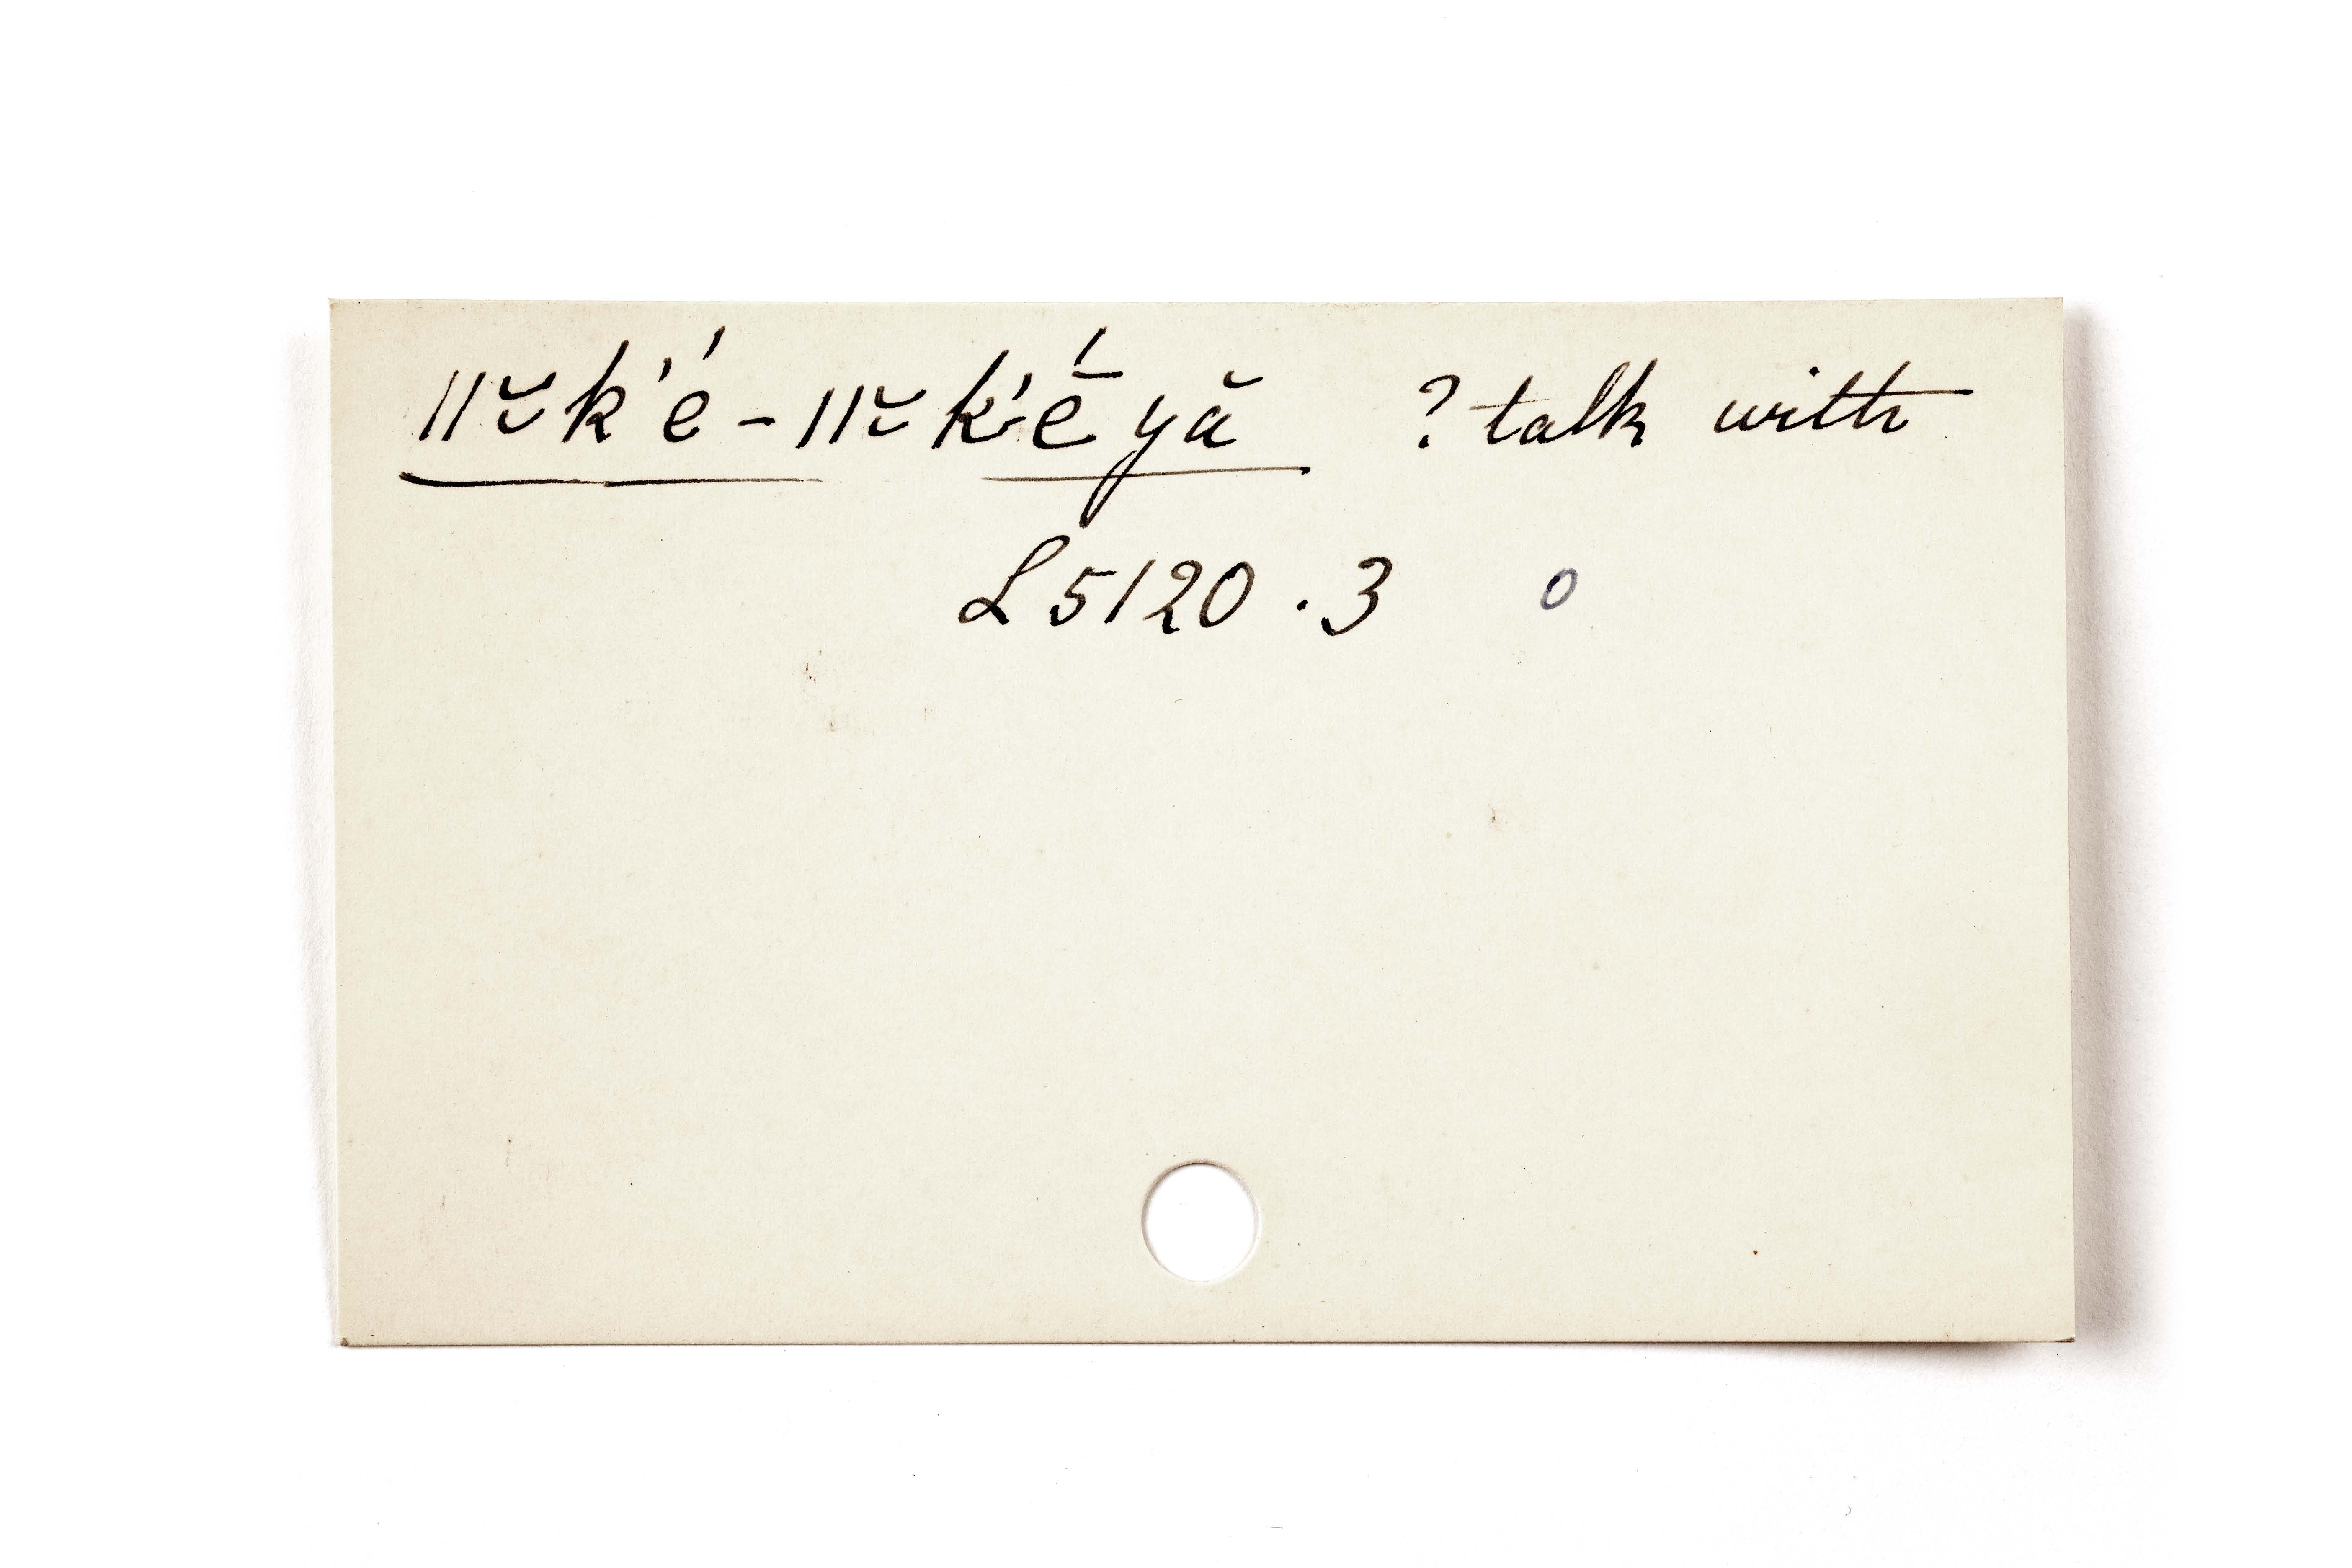 ǁῐ̆k'é-ǁῐ̆k'ḗyă ? talk with
L 5120 . 3 0